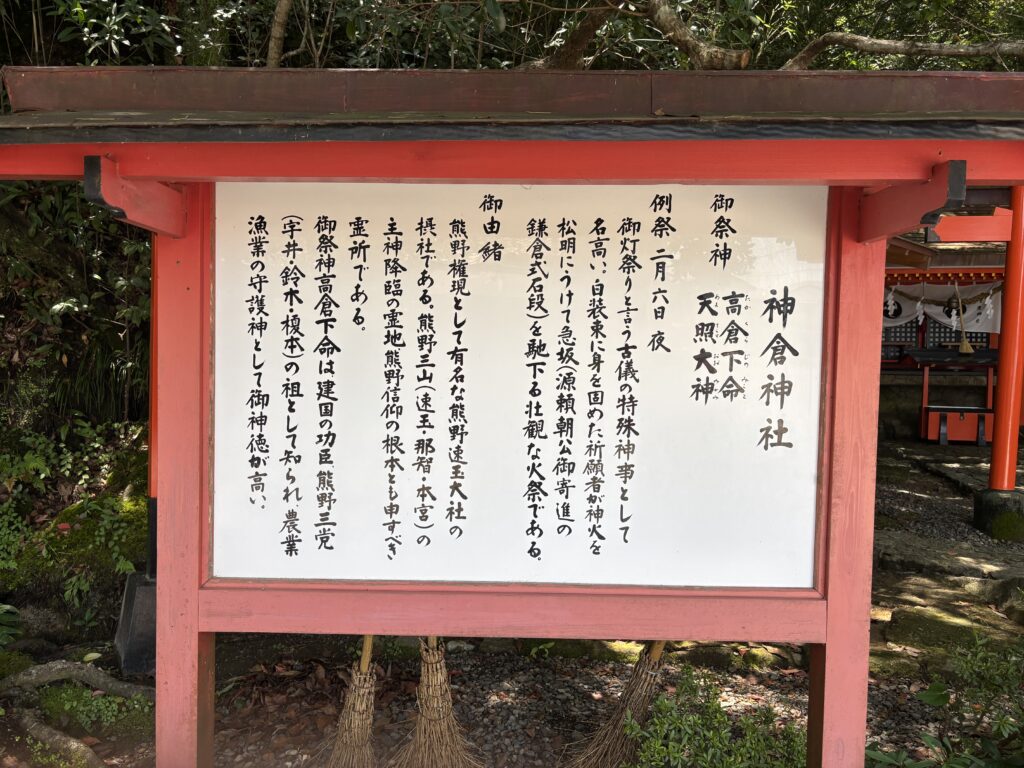 神倉神社
御祭神
高倉下命
たかくらじのみこと
天照大神
例祭 二月六日 夜
御灯祭りと言う古儀の特殊神事として
名高い。白装束に身を固めた祈願者が神火を
松明にうけて急坂(源頼朝公御寄進の
鎌倉式石段)を馳下る壮観な火祭である。
御由緒
熊野権現として有名な熊野速玉大社の
摂社である。熊野三山(速玉・那智・本宮)の
主神降臨の霊地熊野信仰の根本とも申すべき
霊所である。
御祭神高倉下命は建国の功臣、熊野三党
(宇井・鈴木・榎本)の祖として知られ、農業
漁業の守護神として御神徳が高い。